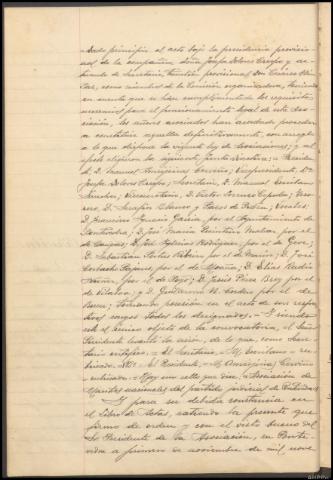 dado principio al acto bajo la presidencia provisio-
nal de la compañera doña Josefa Dolores Crespo y ac-
tuando de Secretario, también provisional, Don
como miembros de la Comisión organizadora, teniendo
en cuenta que se han cumplimentado los requisitos
necesarios para el funcionamiento legal de esta Aso-
ciación, los señores asociados han acordado proceder
a constituir aquella definitivamente, con arreglo
a lo que dispone la vigente ley de Asociaciones; y al
efecto eligieron la siguiente Junta directiva: Presiden-
te, D. Manuel Amorgínez Cerviño; Vicepresidente, Dª
Josefa Dolores Crespo; Secretario, D. Manuel Centeno
Sánchez; Vicesecretario, D. Víctor Torres Capelo; Teso-
rero, D. Serafín Blanco y Pazos de Probén; Vocales:
D. Francisco Ignacio García, por el Ayuntamiento de
Pontevedra; D. José María Quintáns Muiños por el
de Cangas; D. José Iglesias Rodríguez, por el de Geve;
D. Sebastián Portas Ribeiro por el de Marín; D. José
por el de Moaña; D. Elías
Núñez, por el de Poyo; D. Jesús Pérez Brey por el
de Vilaboa; y D. Guillermo N. Cordeo por el de
Bueu; tomando posesión en el acto de sus respec-
tivos cargos todos los designados. Y siendo
este el único objeto de la convocatoria, el Señor
Presidente levantó la sesión, de lo que, como Secre-
tario certifico. El Secretario, M. Centeno - ru-
bricado. Vº Bº El Presidente, M. Amorgínez Cerviño
- rubricado. Hay un sello que dice: Asociación de
Maestros nacionales del partido judicial de Pontevedra.
Y para su debida constancia en
el Libro de Actas, extiendo la presente que
firmo de orden y con el visto bueno del
Sr. Presidente de la Asociación, en Ponte-
vedra a primero de noviembre de mil nove